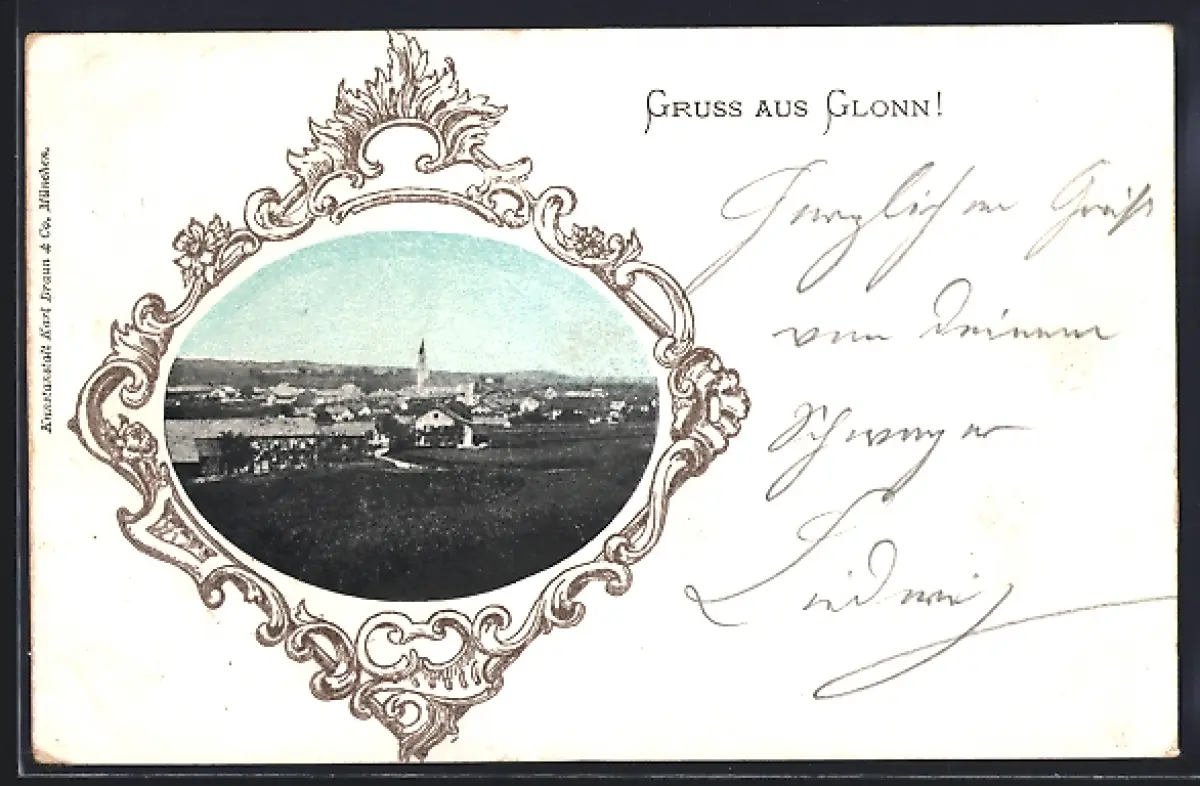 GRUSS AUS GLONN!
Herzlichen Gruß
von Deinem
Schwager
Ludwig
Kunstanstalt Karl Braun & Co. München.